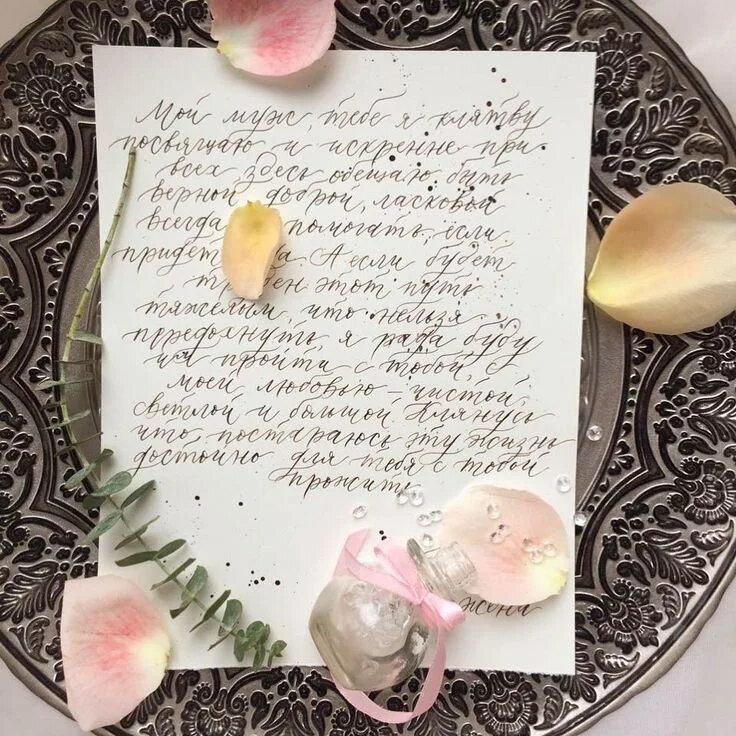 Мой муж, тебе я клятву
посвящаю и искренне при
всех здесь обещаю быть
верной, доброй, ласковой
всегда помогать, если
придёт да. А если будет
этот путь
тяжелым, что нельзя
передохнуть, я рада буду
им пройти с тобой,
моей любовью – чистой,
светлой и большой. Клянусь
что, постараюсь эту жизнь
достойно для тебя с тобой
прожить.
жена